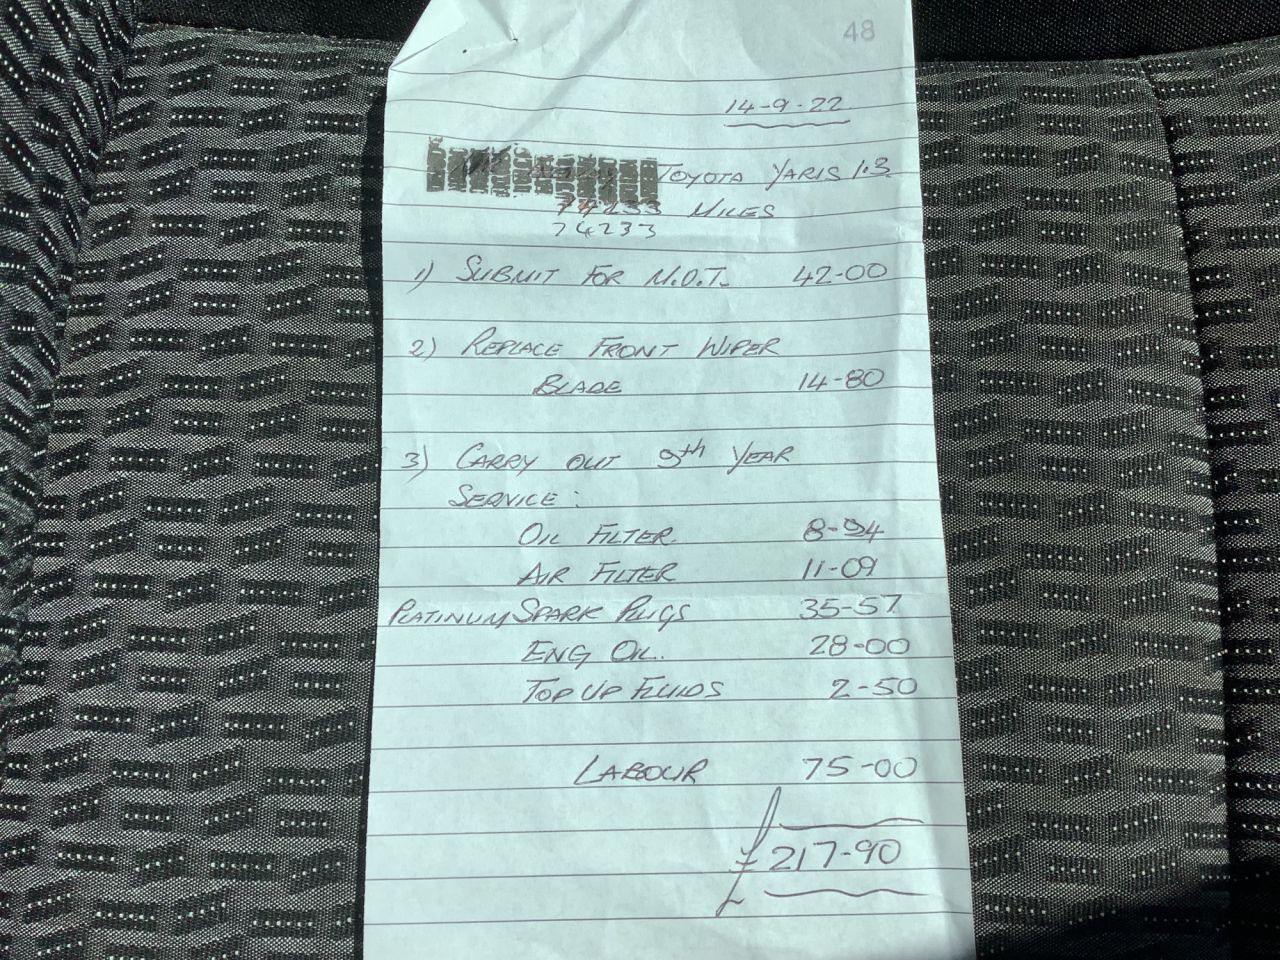 48
14-9-22
TOYOTA YARIS 1.3
74233 MILES
74233
1) SUBMIT FOR M.O.T. 42-00
2) REPLACE FRONT WIPER
BLADE 14-80
3) CARRY OUT 9th YEAR
SERVICE:
OIL FILTER 8-94
AIR FILTER 11-09
PLATINUM SPARK PLUGS 35-57
ENG OIL. 28-00
TOP UP FLUIDS 2-50
LABOUR 75-00
£217-90